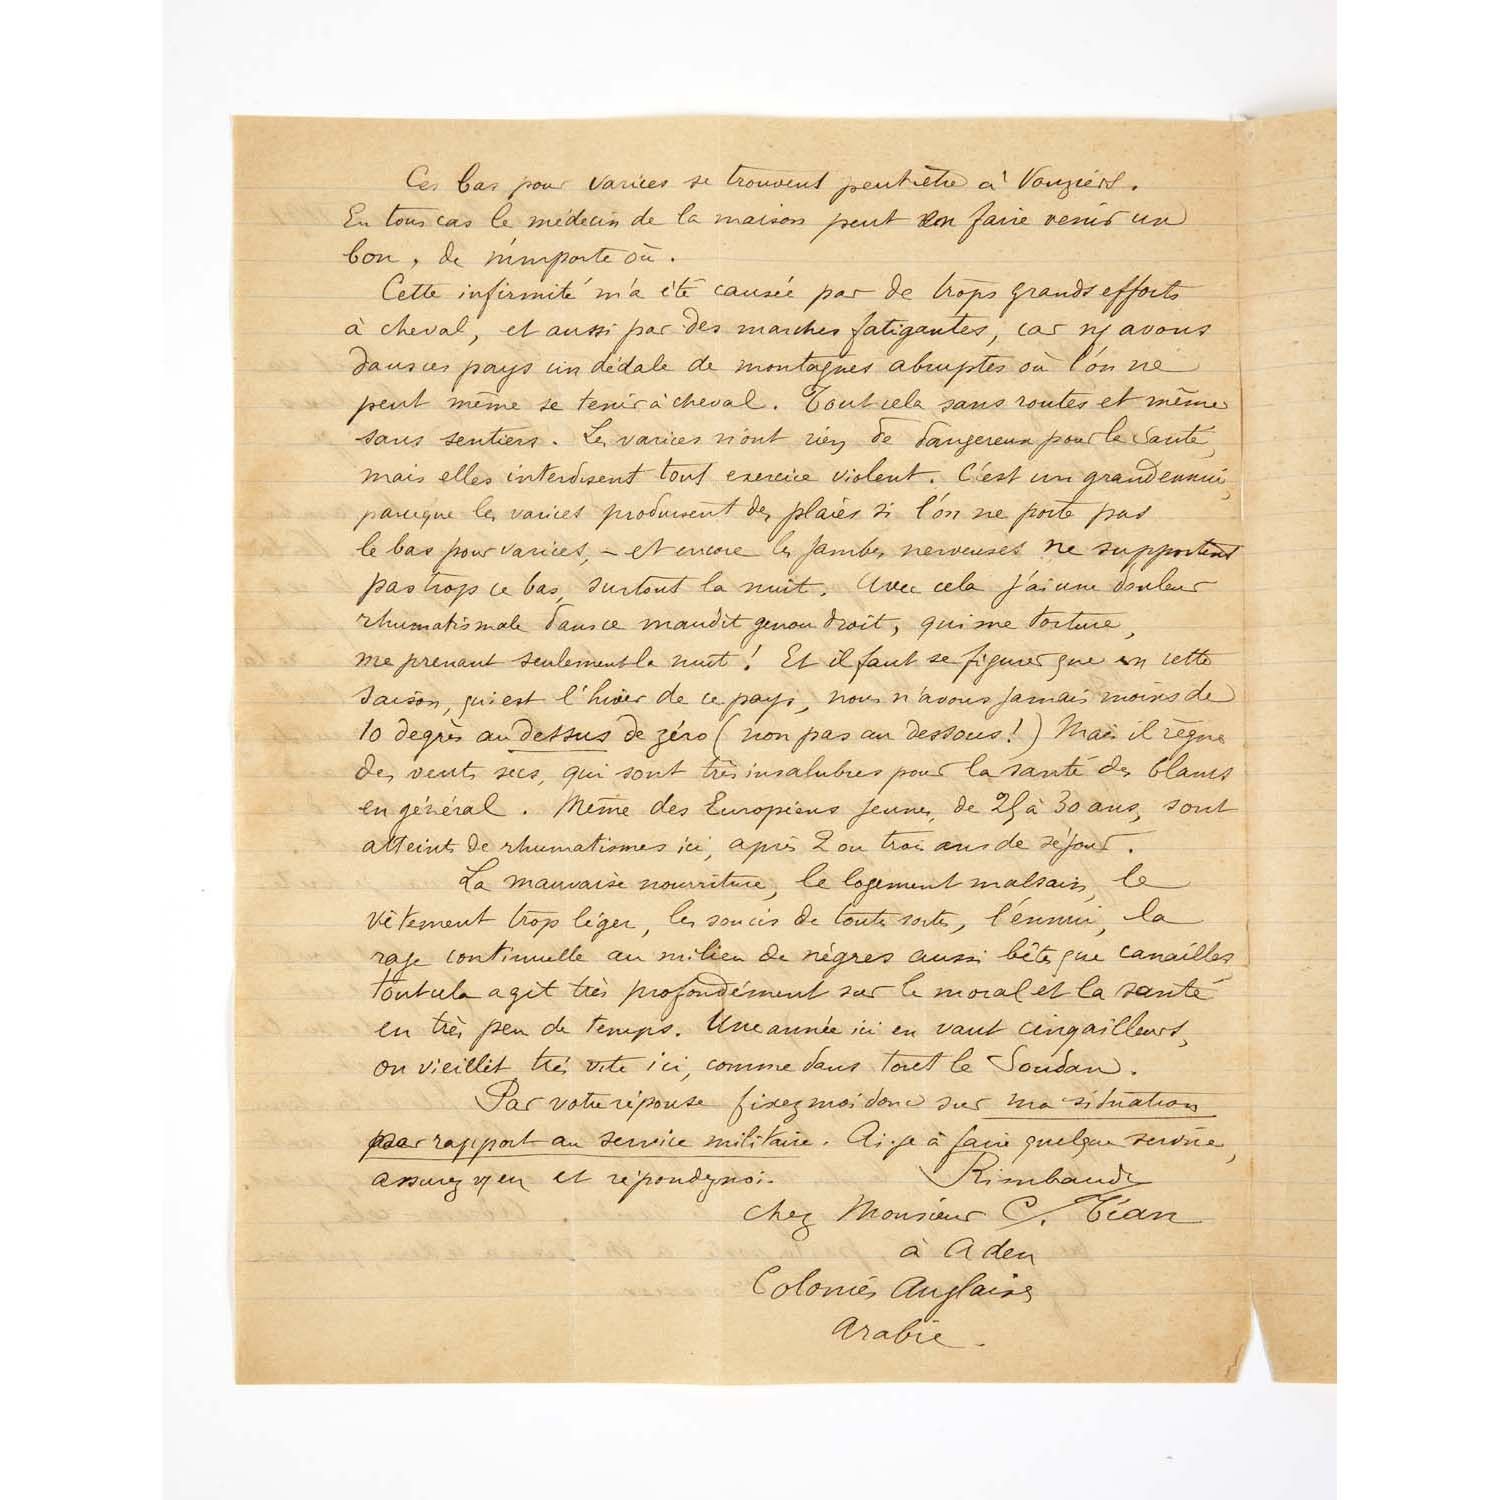 Ces bas pour varices se trouvent peut-être à Vouziers.
En tous cas le médecin de la maison peut en faire venir un
bon, de n'importe où.
Cette infirmité m'a été causée par de trops grands efforts
à cheval, et aussi par des marches fatigantes, car ns avons
dans ces pays un dédale de montagnes abruptes où l'on ne
peut même se tenir à cheval. Tout cela sans routes et même
sans sentiers. Les varices n'ont rien de dangereux pour la santé,
mais elles interdisent tout exercice violent. C'est un grand ennui,
parceque les varices produisent des plaies si l'on ne porte pas
le bas pour varices, – et encore les jambes nerveuses ne supportent
pas trop ce bas, surtout la nuit. Avec cela j'ai une douleur
rhumatismale dans ce maudit genou droit, qui me torture,
me prenant seulement la nuit! Et il faut se figurer que en cette
saison, qui est l'hiver de ce pays, nous n'avons jamais moins de
10 degrés au dessus de zéro (non pas au dessous!) Mais il règne
des vents secs, qui sont très insalubres pour la santé des blancs
en général. Même des Européens jeunes, de 25 à 30 ans, sont
atteints de rhumatismes ici, après 2 ou trois ans de séjour.
La mauvaise nourriture, le logement malsain, le
vêtement trop léger, les soucis de toutes sortes, l'ennui, la
rage continuelle au milieu de nègres aussi bêtes que canailles,
tout cela agit très profondément sur le moral et la santé
en très peu de temps. Une année ici en vaut cinq ailleurs,
on vieillit très vite ici, comme dans tout le Soudan.
Par votre réponse fixez moi donc sur ma situation
par rapport au service militaire. Ai-je à faire quelque service,
assurez vs en et répondez moi.
Rimbaud
chez Monsieur C. Tian
à Aden
Colonies Anglaises
Arabie.